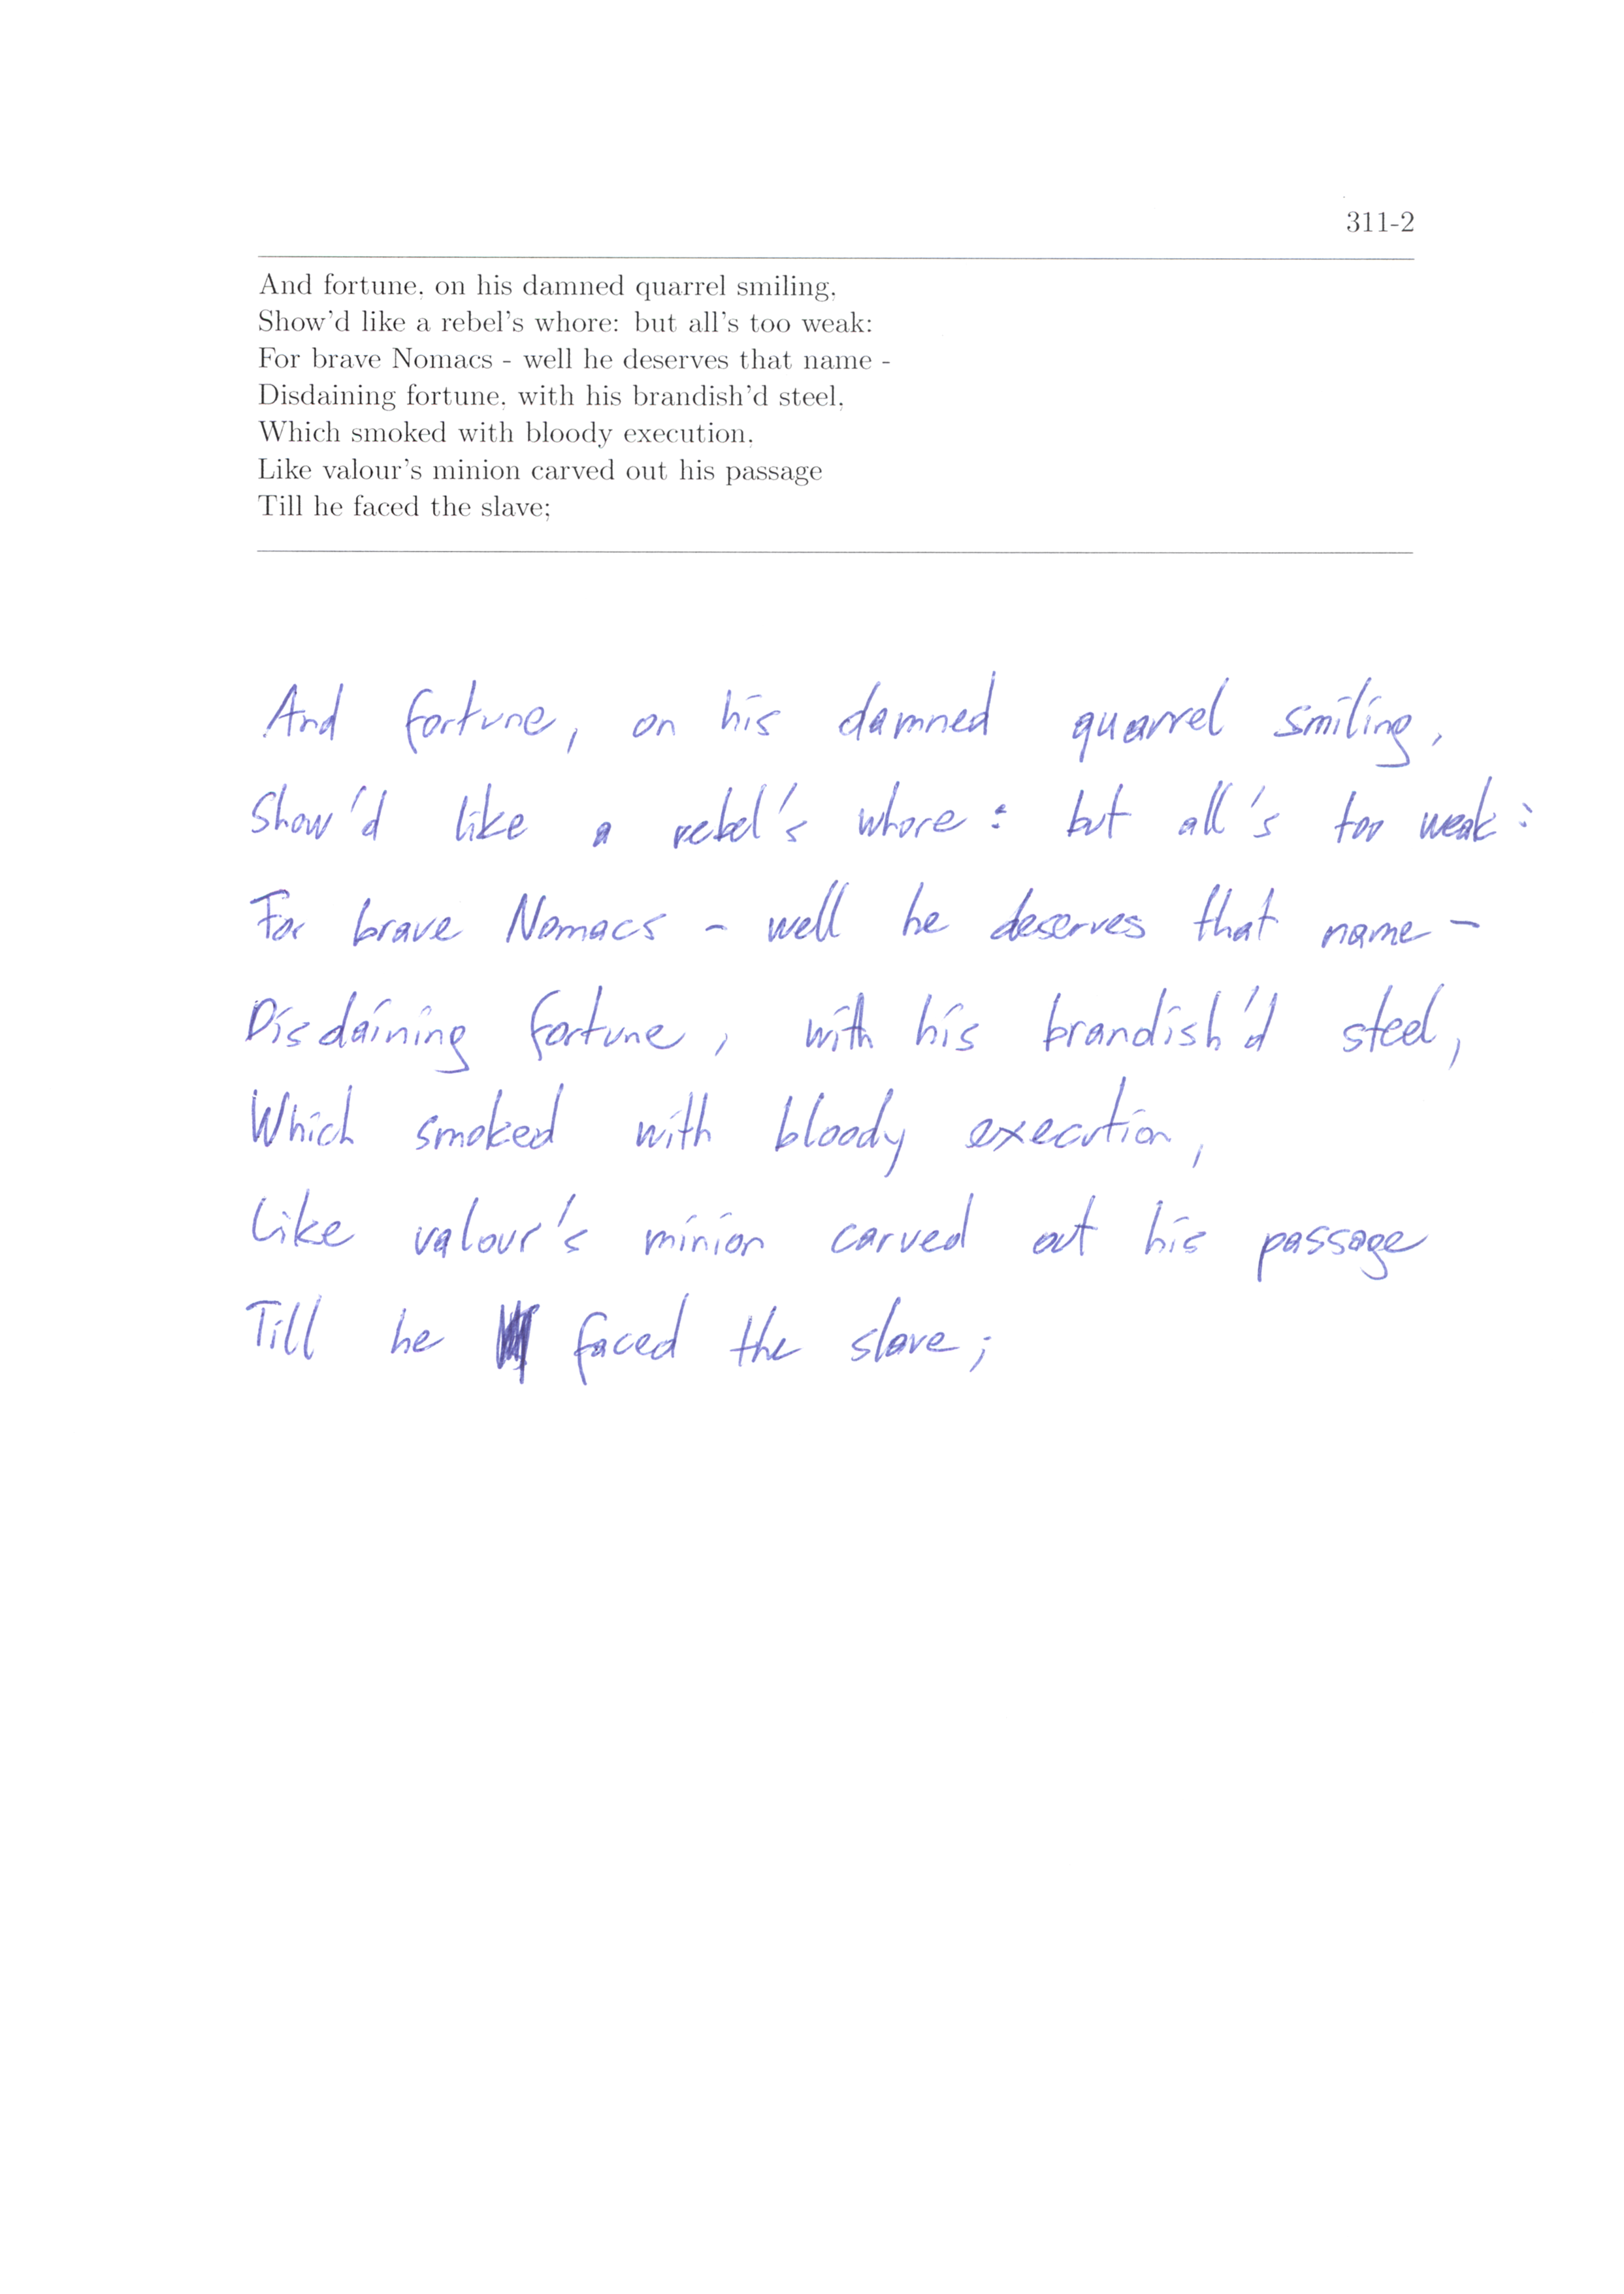 311-2
And fortune, on his damned quarrel smiling,
Show'd like a rebel's whore: but all's too weak:
For brave Nomacs - well he deserves that name -
Disdaining fortune, with his brandish'd steel,
Which smoked with bloody execution,
Like valour's minion carved out his passage
Till he faced the slave;
And fortune, on his damned quarrel smiling,
Show'd like a rebel's whore: but all's too weak:
For brave Nomacs - well he deserves that name -
Disdaining fortune, with his brandish'd steel,
Which smoked with bloody execution,
Like valour's minion carved out his passage
Till he faced the slave;